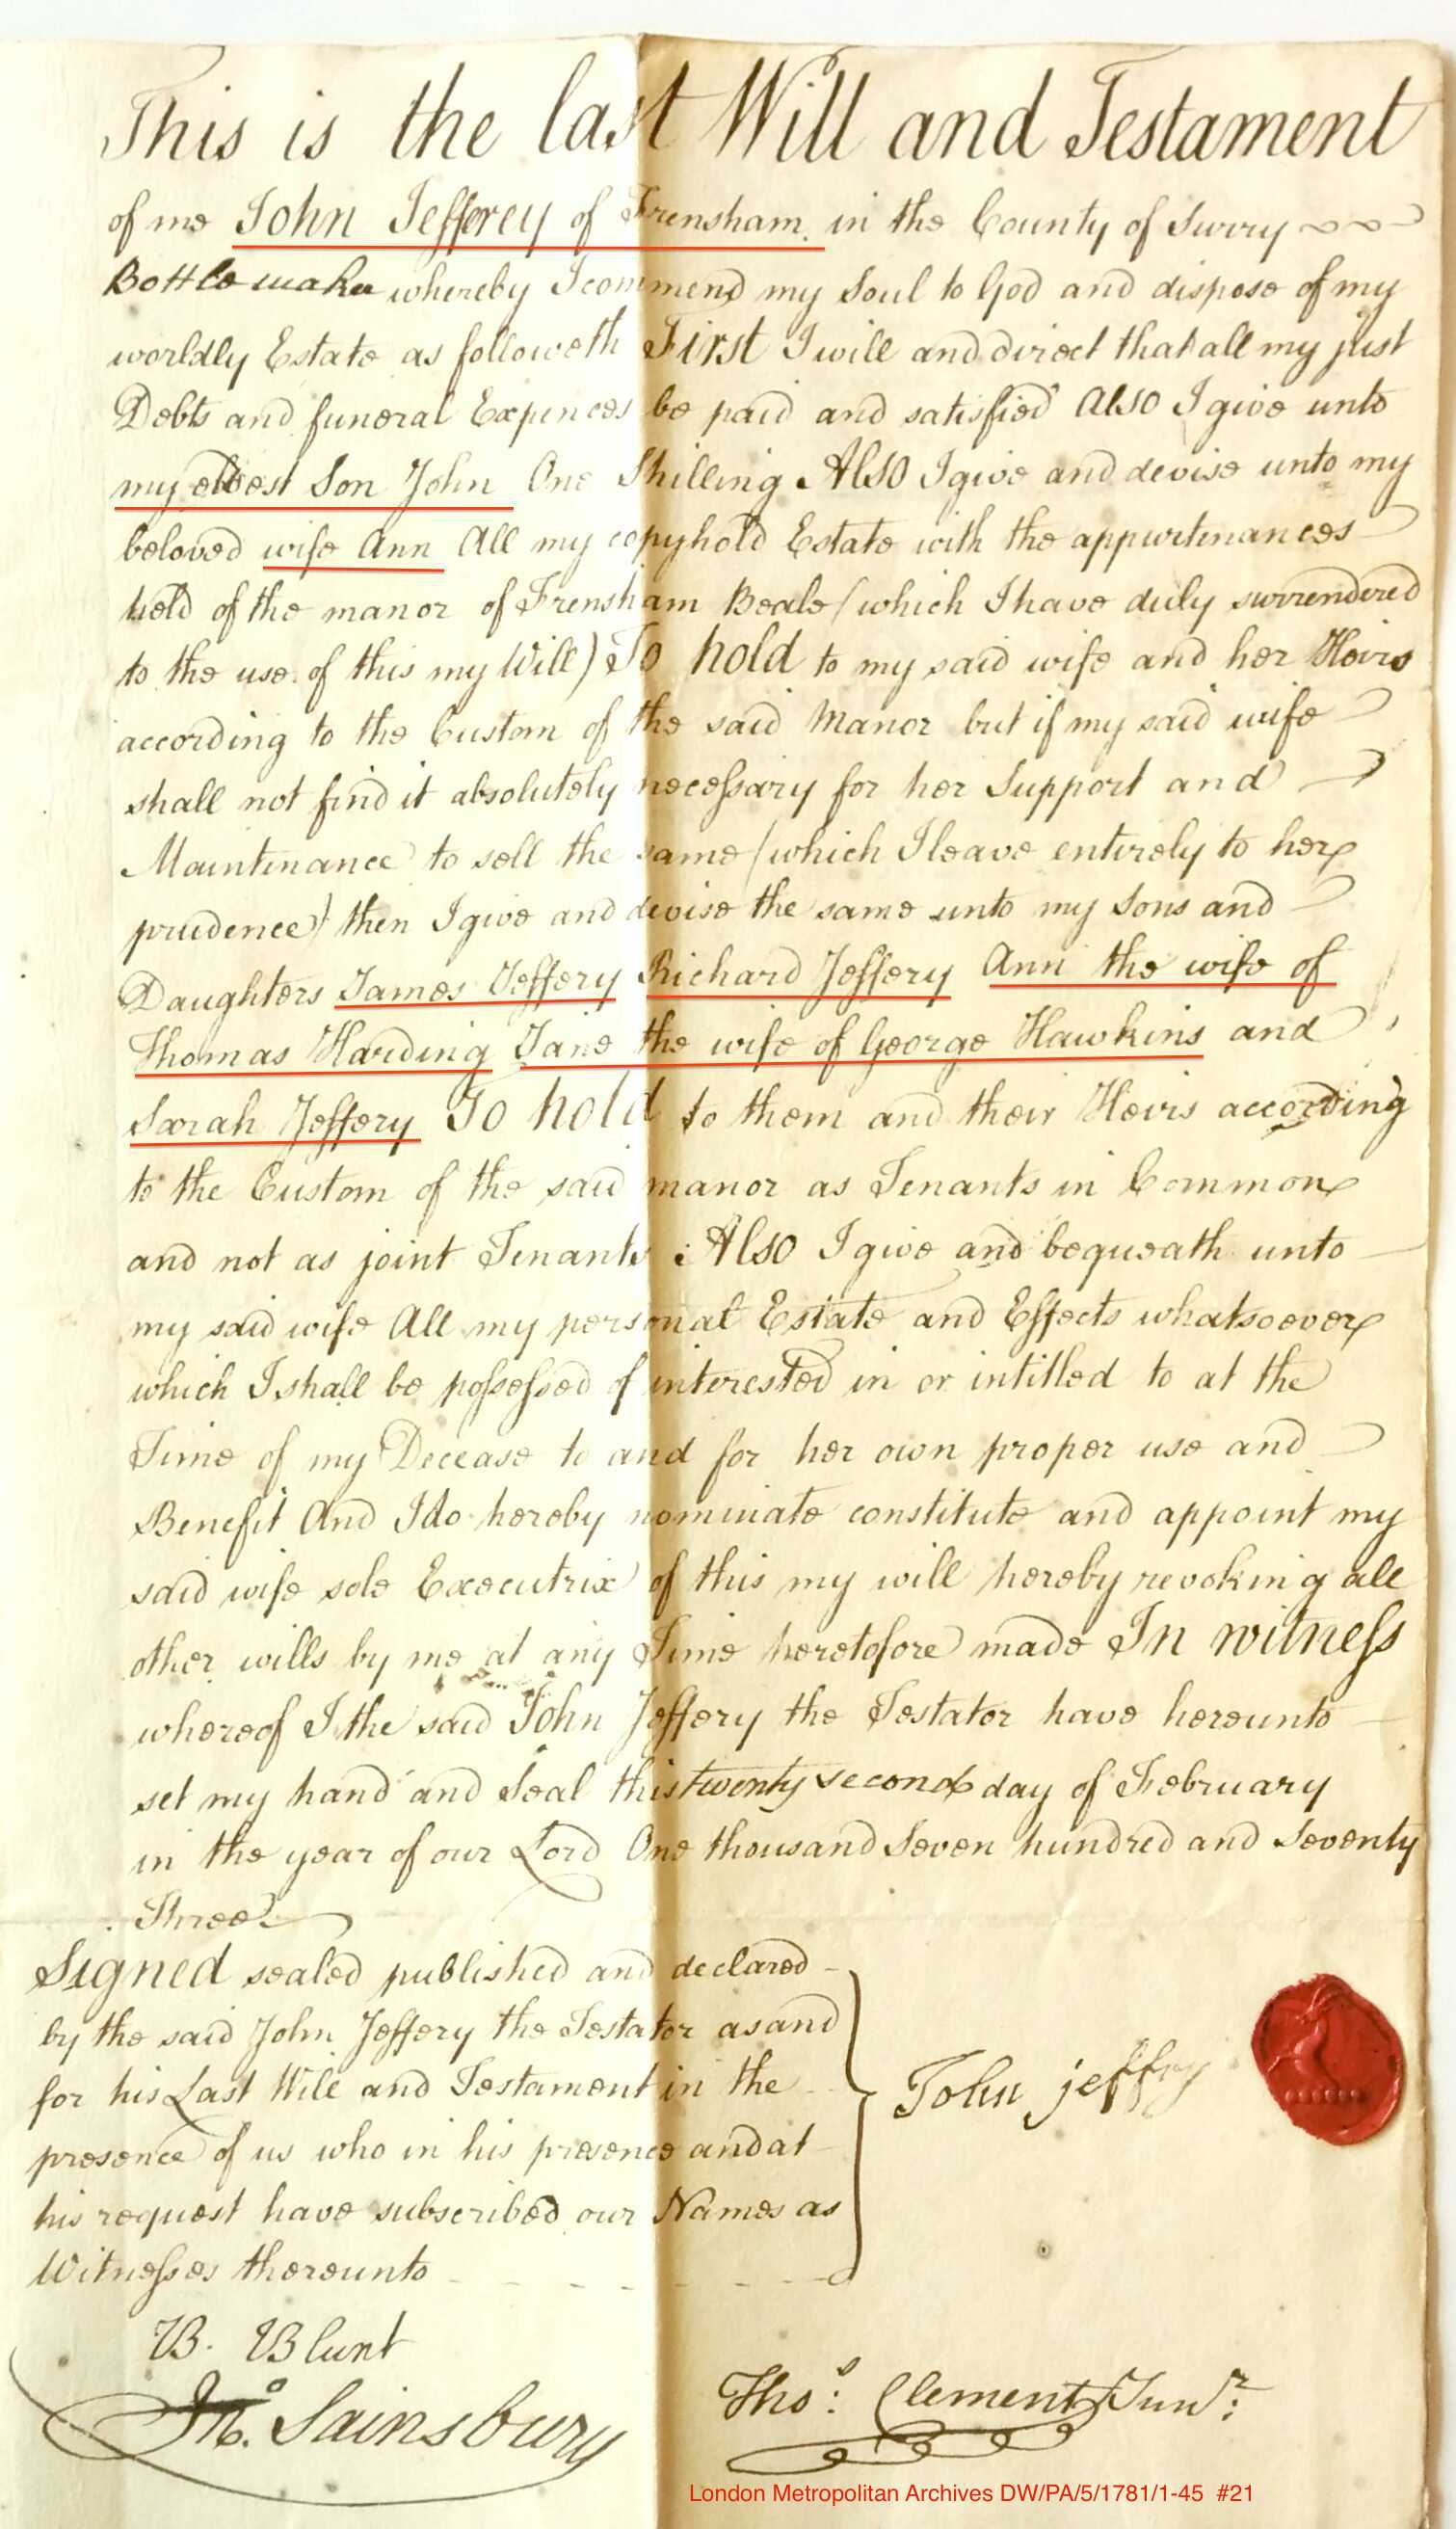 This is the last Will and Testament
of me John Jefferey of Frensham in the County of Surry
Bottlemaker whereby I commend my Soul to God and dispose of my
worldly Estate as followeth First I will and direct that all my just
Debts and funeral Expences be paid and satisfied Also I give unto
my eldest Son John One Shilling Also I give and devise unto my
beloved wife Ann All my copyhold Estate with the appurtenances
held of the manor of Frensham Beale (which I have duly surrendered
to the use of this my Will) To hold to my said wife and her Heirs
according to the Custom of the said Manor but if my said wife
shall not find it absolutely necessary for her Support and
Maintinance to sell the same (which I leave entirely to her
prudence) then I give and devise the same unto my Sons and
Daughters James Jeffery Richard Jeffery Ann the wife of
Thomas Harding Jane the wife of George Hawkins and
Sarah Jeffery To hold to them and their Heirs according
to the Custom of the said manor as Tenants in Common
and not as joint Tenants Also I give and bequeath unto
my said wife All my personal Estate and Effects whatsoever
which I shall be possessed of interested in or intitled to at the
Time of my Decease to and for her own proper use and
Benefit And I do hereby nominate constitute and appoint my
said wife sole Executrix of this my will hereby revoking all
other wills by me at any Time heretofore made In witness
whereof I the said John Jeffery the Testator have hereunto
set my hand and Seal this twenty second day of February
in the year of our Lord One thousand Seven hundred and Seventy
Three
Signed sealed published and declared
by the said John Jeffery the Testator as and
for his Last Will and Testament in the
presence of us who in his presence and at
his request have subscribed our Names as
Witnesses thereunto
John jeffry
B. Blunt
Jno. Sainsbury
Thos: Clement Junr:
London Metropolitan Archives DW/PA/5/1781/1-45 #21